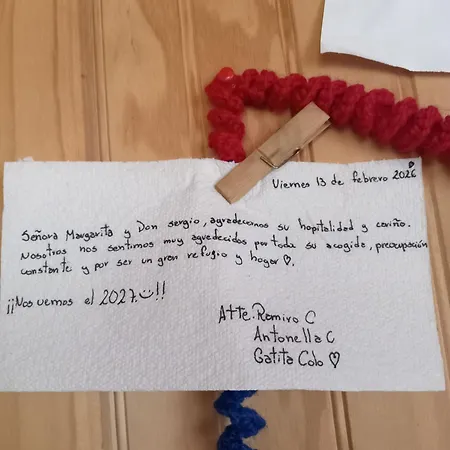 Viernes 13 de febrero 2026
Señora Margarita y Don sergio, agradecemos su hopitalidad y cariño.
Nosotros nos sentimos muy agradecidos por toda su acogida, preocupación
constante y por ser un gran refugio y hogar ♡.
¡¡Nos vemos el 2027 :)!!
Atte. Ramiro C
Antonella C
Gatita Colo ♡